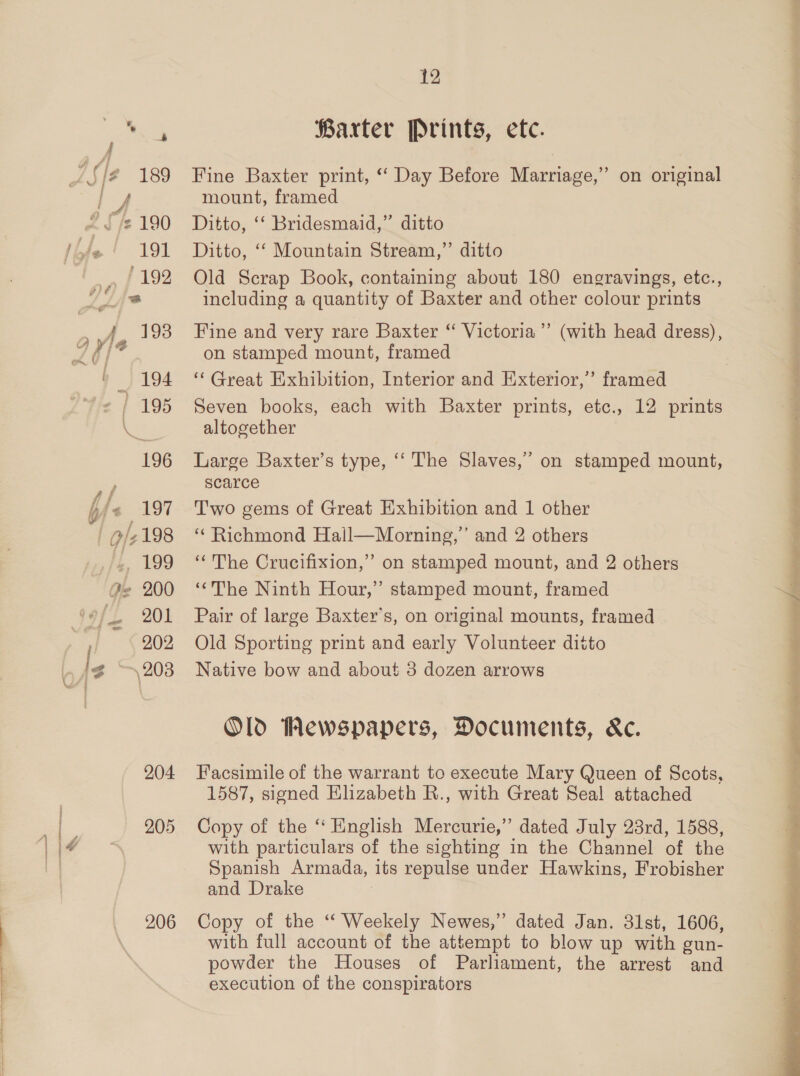 12
Baxter Prints, etc.
189 Fine Baxter print, “ Day Before Marriage,” on original
mount, framed
190 Ditto, “ Bridesmaid,” ditto
191 Ditto, “ Mountain Stream,” ditto
192 Old Scrap Book, containing about 180 engravings, etc.,
including a quantity of Baxter and other colour prints
193 Fine and very rare Baxter “ Victoria” (with head dress),
on stamped mount, framed
194 “ Great Exhibition, Interior and Exterior,” framed
195 Seven books, each with Baxter prints, etc., 12 prints
altogether
196 Large Baxter’s type, “ The Slaves,” on stamped mount,
scarce
197 Two gems of Great Exhibition and 1 other
198 “ Richmond Hall—Morning,” and 2 others
199 “ The Crucifixion,” on stamped mount, and 2 others
200 “ The Ninth Hour,” stamped mount, framed
201 Pair of large Baxter’s, on original mounts, framed
202 Old Sporting print and early Volunteer ditto
203 Native bow and about 3 dozen arrows
Old Newspapers, Documents, &c.
204 Facsimile of the warrant to execute Mary Queen of Scots,
1587, signed Elizabeth R., with Great Seal attached
205 Copy of the “ English Mercurie,” dated July 23rd, 1588,
with particulars of the sighting in the Channel of the
Spanish Armada, its repulse under Hawkins, Frobisher
and Drake
206 Copy of the “ Weekely Newes,” dated Jan. 31st, 1606,
with full account of the attempt to blow up with gun-
powder the Houses of Parliament, the arrest and
execution of the conspirators